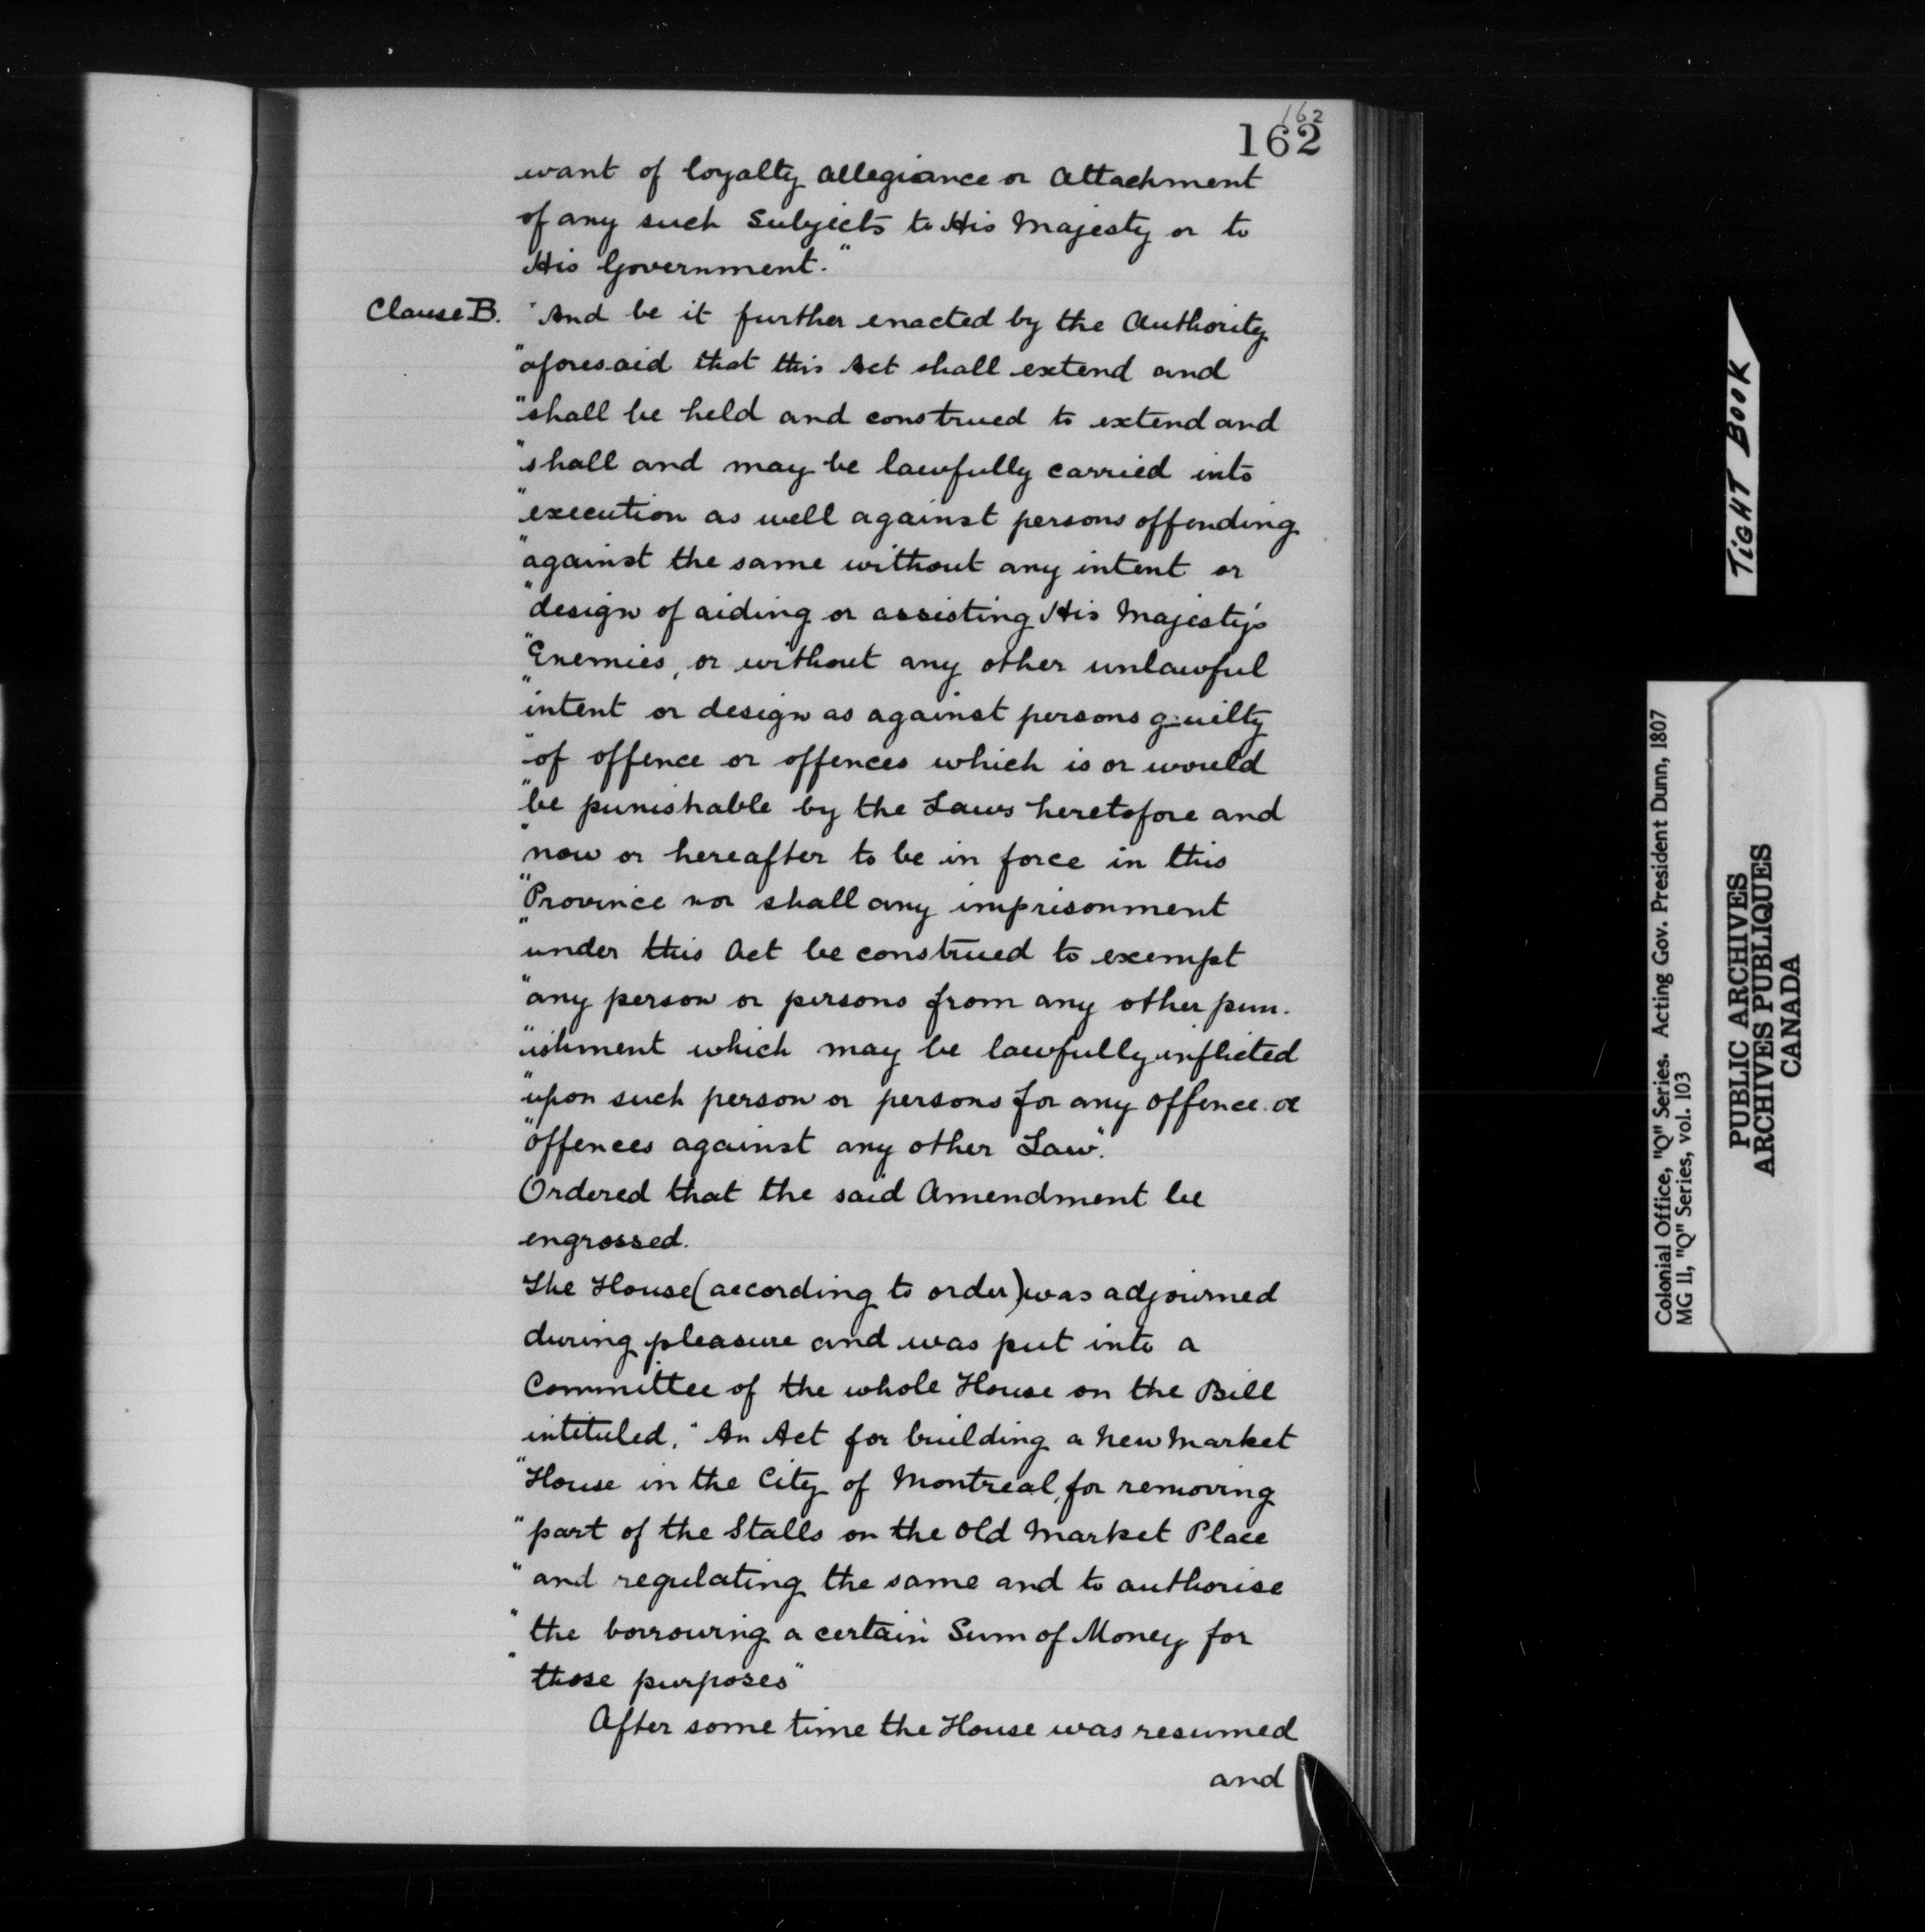 162
162
want of loyalty allegiance or Attachment
of any such Subjects to His Majesty or to
His Government."
Clause B. "And be it further enacted by the Authority
"aforesaid that this Act shall extend and
"shall be held and construed to extend and
"shall and may be lawfully carried into
"execution as well against persons offending
"against the same without any intent or
"design of aiding or assisting His Majesty's
"Enemies, or without any other unlawful
"intent or design as against persons guilty
"of offence or offences which is or would
"be punishable by the Laws heretofore and
"now or hereafter to be in force in this
"Province nor shall any imprisonment
"under this Act be construed to exempt
"any person or persons from any other pun-
"ishment which may be lawfully inflicted
"upon such person or persons for any offence or
"offences against any other Law".
Ordered that the said Amendment be
engrossed.
The House (according to order) was adjourned
during pleasure and was put into a
Committee of the whole House on the Bill
intituled, "An Act for building a New Market
"House in the City of Montreal, for removing
"part of the Stalls on the Old Market Place
"and regulating the same and to authorise
"the borrowing a certain Sum of Money for
"those purposes"
After some time the House was resumed
and
TIGHT BOOK
Colonial Office, "Q" Series. Acting Gov. President Dunn, 1807
MG 11, "Q" Series, vol. 103
PUBLIC ARCHIVES
ARCHIVES PUBLIQUES
CANADA